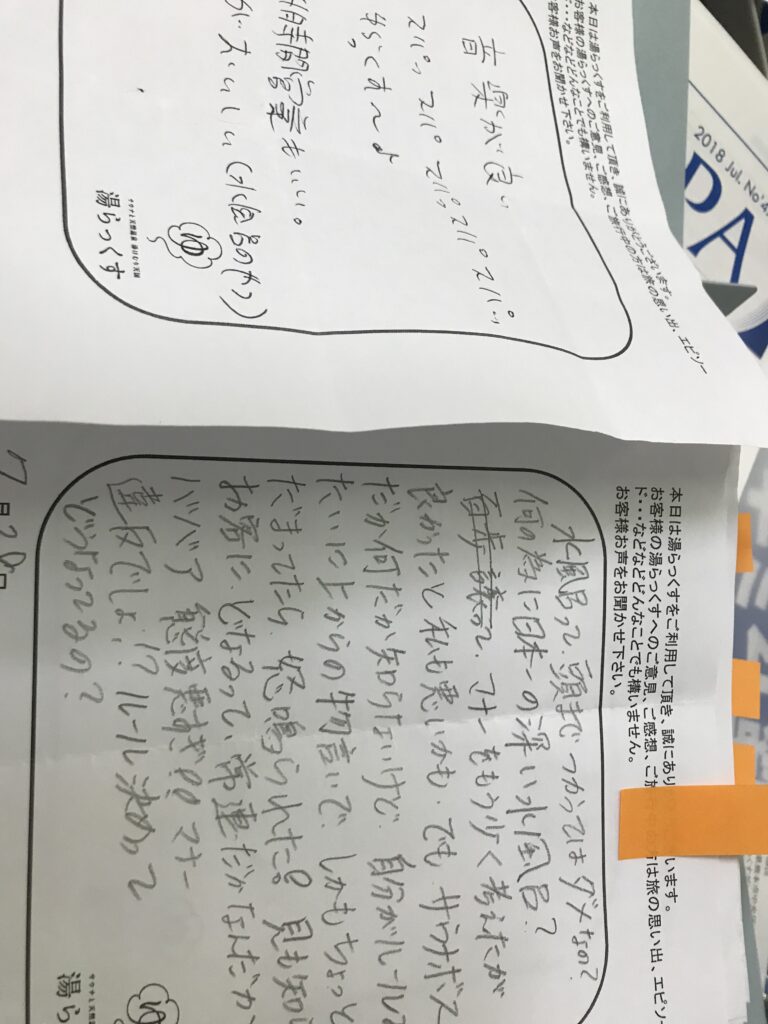 本日は湯らっくすをご利用して頂き、誠にありがとうございます。
お客様の湯らっくすへのご意見、ご感想、ご旅行中の方は旅の思い出、エピソー
ド・・・などなどどんなことでも構いません。
お客様お声をお聞かせ下さい。
音楽が良い
スパッ スパ スパッ スパ スパッ
時間営業もいい。
おいしい(水風呂のやつ)
サウナと天然温泉
湯らっくす
2018 Jul. No'4
PA
本日は湯らっくすをご利用して頂き、誠にあり います。
お客様の湯らっくすへのご意見、ご感想、ご旅 方は旅の思い出、エピソー
ド・・・などなどどんなことでも構いません。
お客様お声をお聞かせ下さい。
水風呂って、頭までつかってはダメなの?
何の為に日本一の深い水風呂?
百歩譲って、マナーをもう少く考えたが
良かったと私も悪いかも。でも、サウナボス
だか何だか知らないけど、自分がルールみ
たいに上からの物言いで、しかもちょっと
だまってたら、怒鳴られた 見も知
お客に、どなるって、常連だかなんだか
ババア 態度悪すぎ マナー
違反でしょ!? ルール決めって
どうなってるの?
7月 日
サウナと天然温泉
湯ら